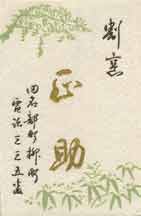 割烹
正助
田名部町柳町
電話三三五番